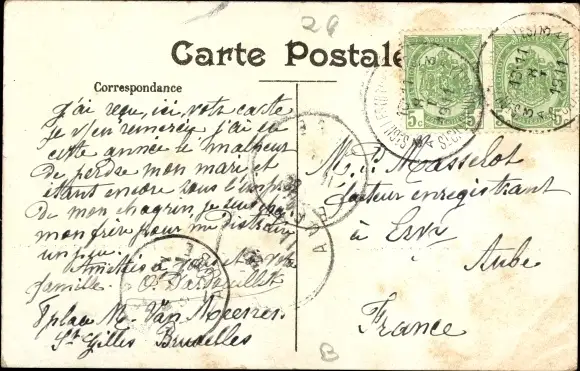 29
Carte Postale
Correspondance
J'ai reçu, ici, votre carte
je v/en remercie j'ai eu
cette année le malheur
de perdre mon mari et
étant encore sous l'emprise
de mon chagrin, je suis
mon frère pour me distraire
un peu.
Amitiés à vous et votre
famille.
8 place M. Van Meenen
St Gilles Bruxelles
M. P. Masselot
facteur enregistrant
à Ervy
Aube
France
5c 5c
5c 5c
B